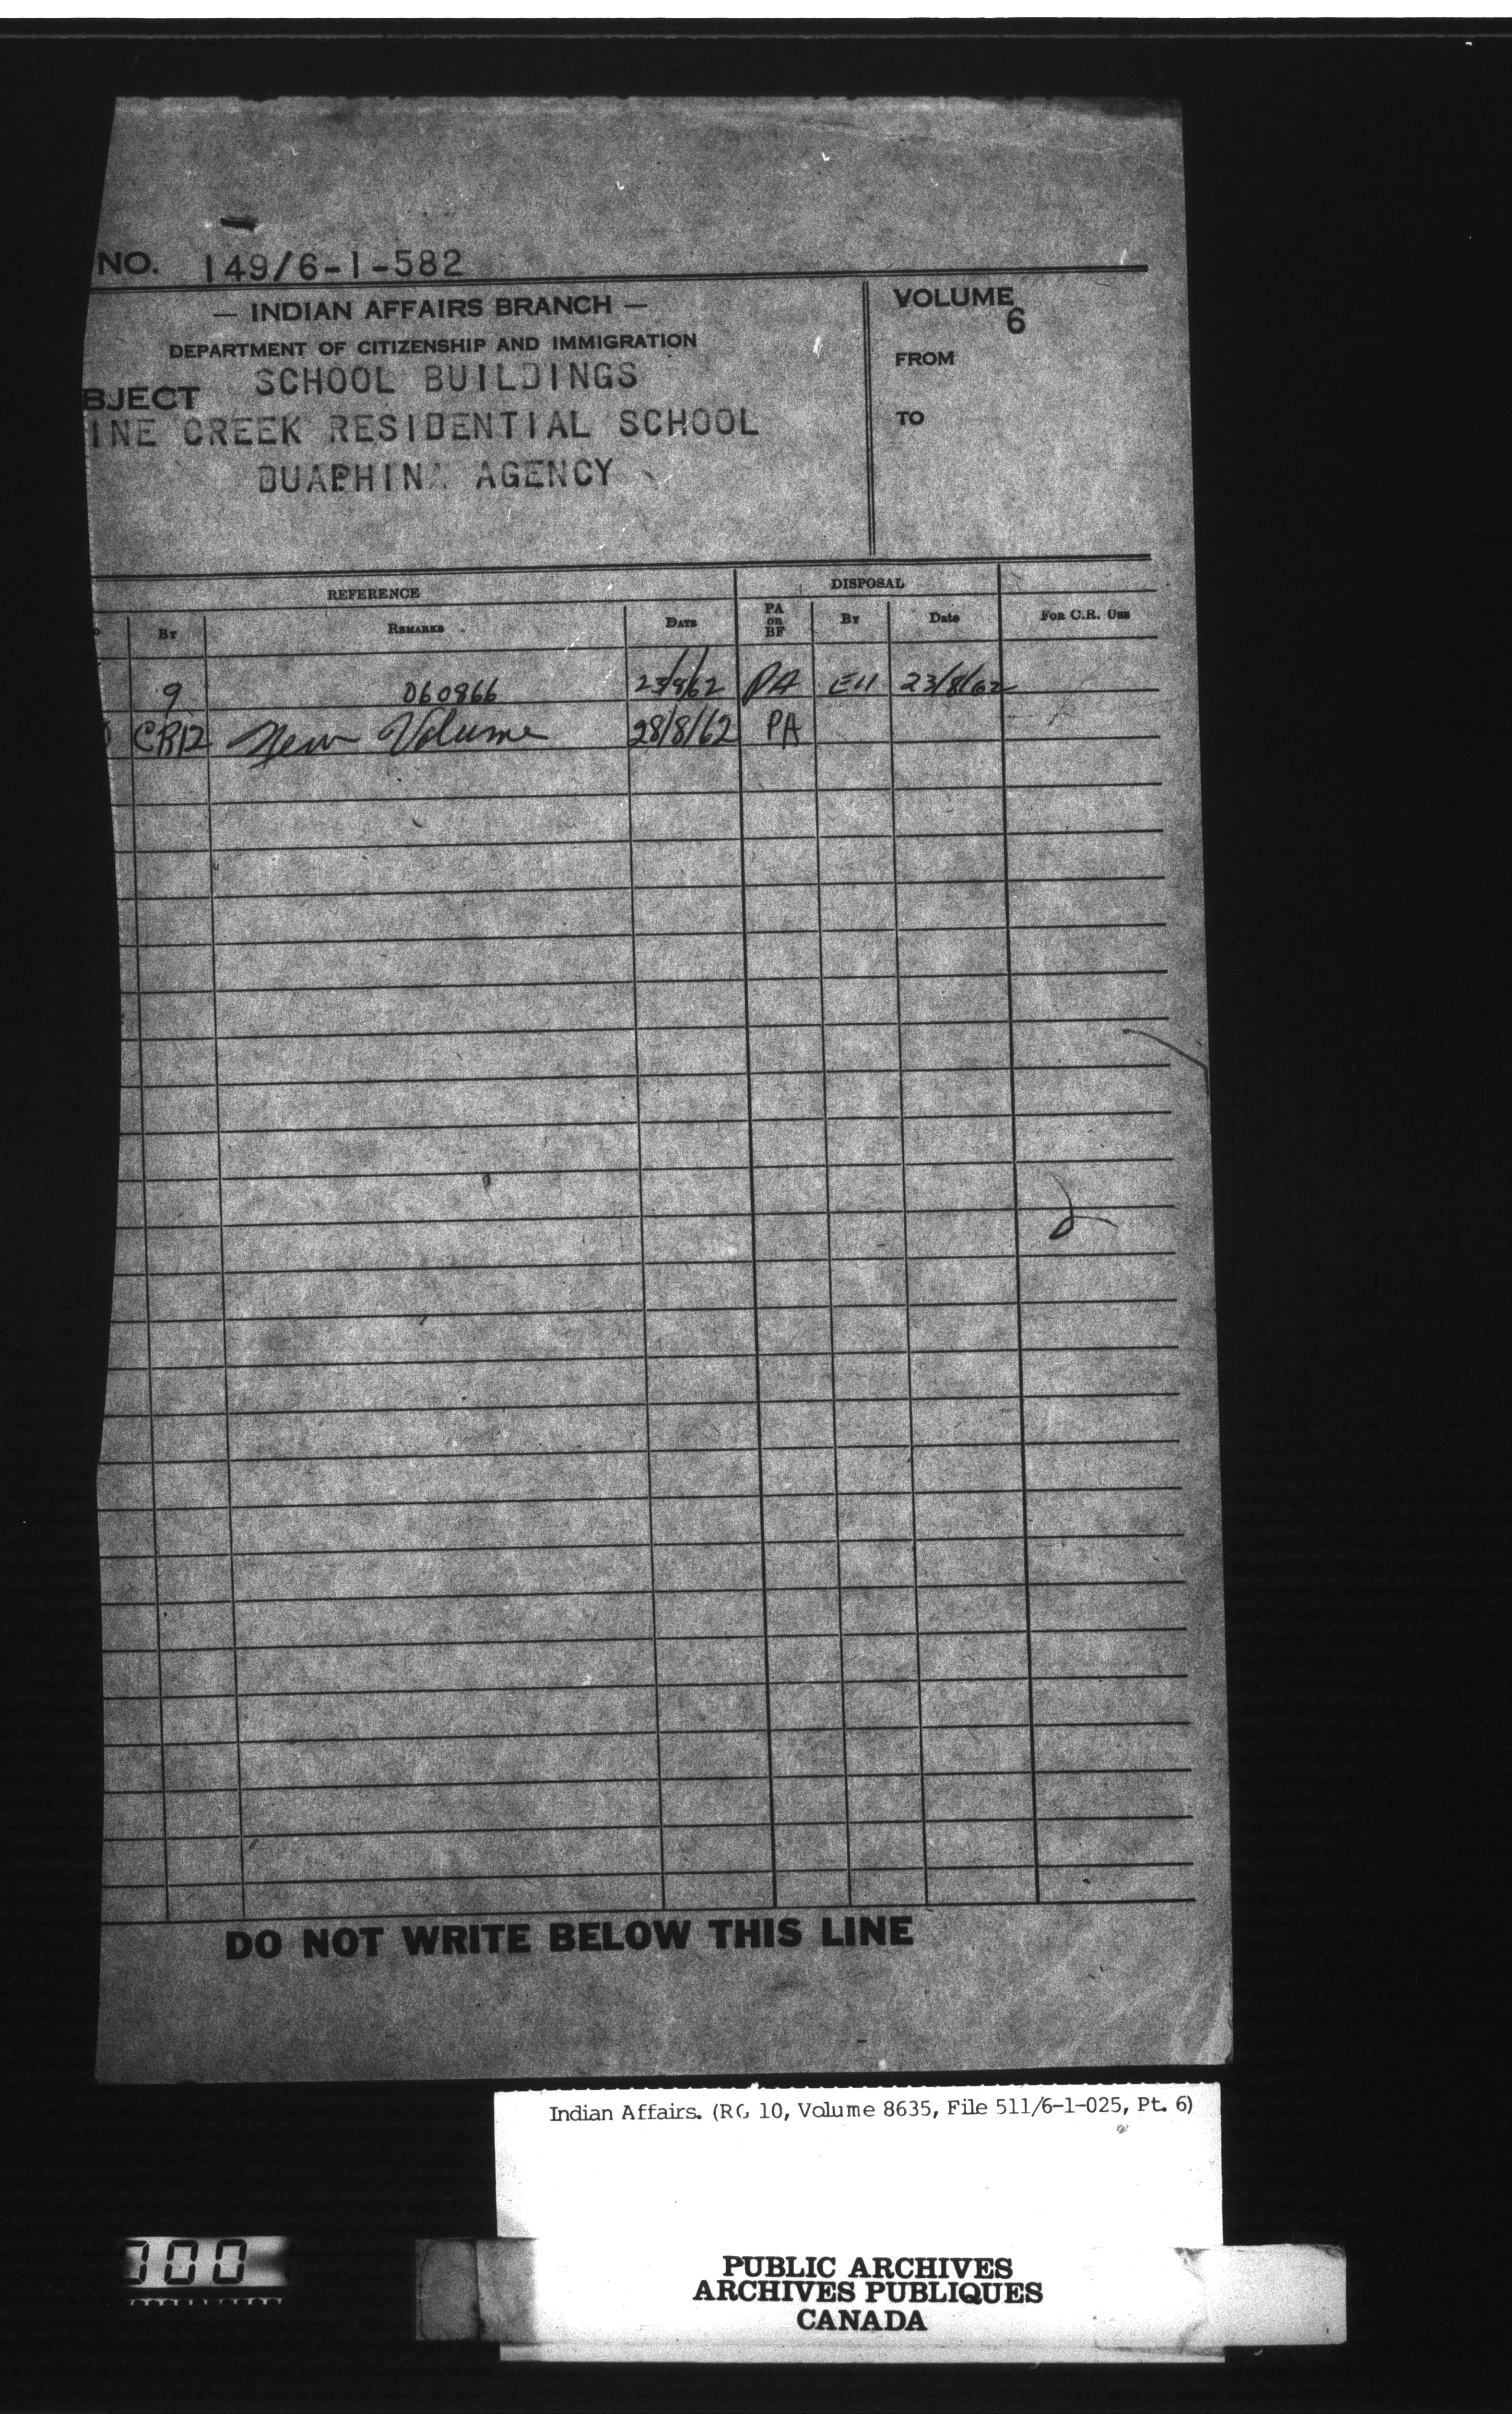 NO. 149/6-1-582
— INDIAN AFFAIRS BRANCH —
DEPARTMENT OF CITIZENSHIP AND IMMIGRATION
BJECT SCHOOL BUILDINGS
INE CREEK RESIDENTIAL SCHOOL
DUAPHIN AGENCY
VOLUME
6
FROM
TO
REFERENCE DISPOSAL
BY REMARKS DATE PA OR BF BY Date FOR C.R. USE
9 060866 23/8/62 PA EH 23/8/62
CR12 New Volume 28/8/62 PA
DO NOT WRITE BELOW THIS LINE
Indian Affairs. (RG 10, Volume 8635, File 511/6-1-025, Pt. 6)
000
PUBLIC ARCHIVES
ARCHIVES PUBLIQUES
CANADA